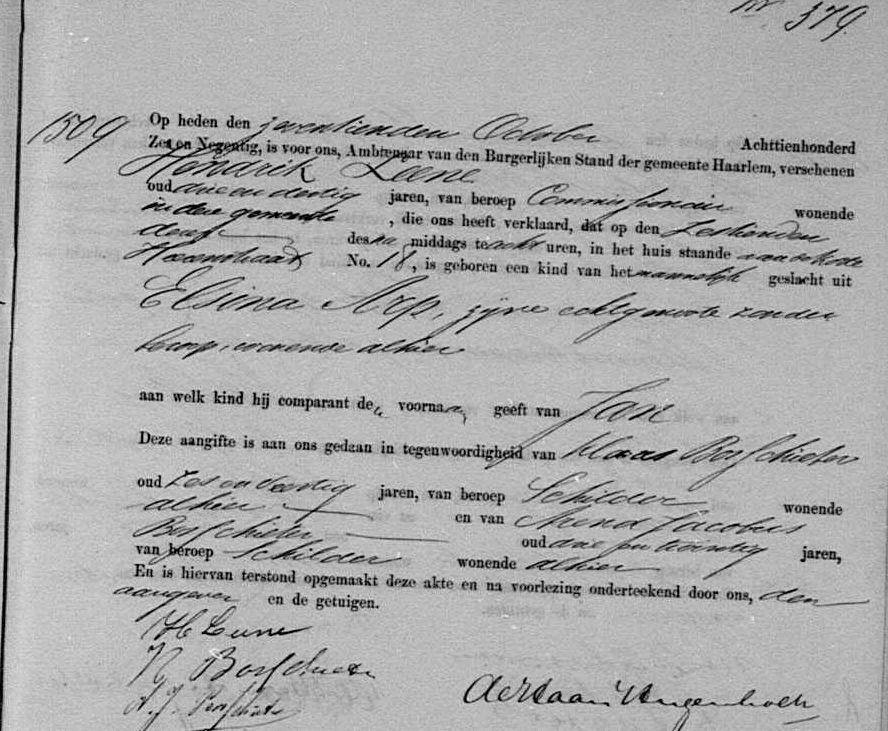 No. 379.
1509
Op heden den zeventienden October Achttienhonderd
Zes en Negentig, is voor ons, Ambtenaar van den Burgerlijken Stand der gemeente Haarlem, verschenen
Hendrik Leene
oud drie en dertig jaren, van beroep Commissionair wonende
in deze gemeente, die ons heeft verklaard, dat op den Zestienden
dezer des na middags te acht uren, in het huis staande aan de
No. 18, is geboren een kind van het mannelijk geslacht uit
Elsina Arp, zijne echtgenoote zonder
beroep, wonende alhier
aan welk kind hij comparant de voornaam geeft van Jan
Deze aangifte is aan ons gedaan in tegenwoordigheid van Klaas Bosschieter
oud Zes en Veertig jaren, van beroep Schilder wonende
alhier en van Arend Jacobus
Bosschieter oud drie en twintig jaren,
van beroep Schilder wonende alhier
En is hiervan terstond opgemaakt deze akte en na voorlezing onderteekend door ons, den
aangever en de getuigen.
H Leene
K Bosschieter
A. J. Bosschieter